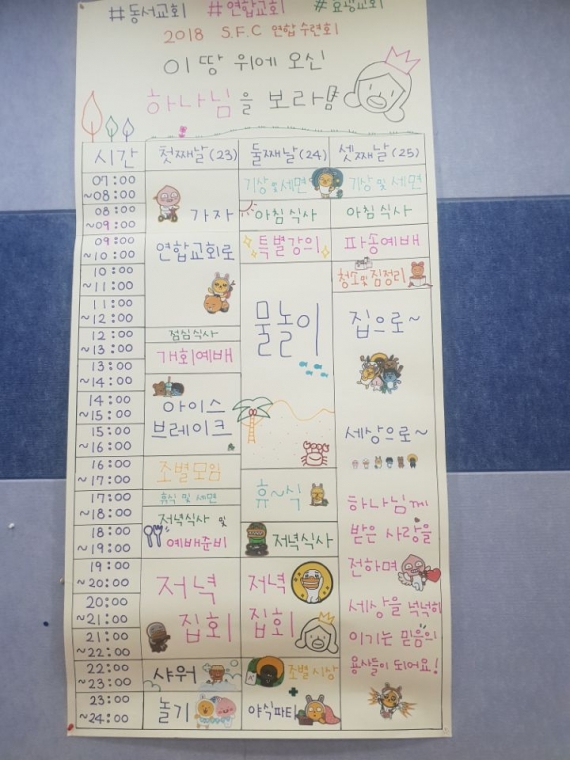 #동서교회 #연합교회 #요광교회
2018 S.F.C 연합 수련회
이 땅 위에 오신
하나님을 보라!
시간 첫째날(23) 둘째날(24) 셋째날(25)
07:00 ~08:00
08:00 ~09:00
09:00 ~10:00
10:00 ~11:00
11:00 ~12:00
12:00 ~13:00
13:00 ~14:00
14:00 ~15:00
15:00 ~16:00
16:00 ~17:00
17:00 ~18:00
18:00 ~19:00
19:00 ~20:00
20:00 ~21:00
21:00 ~22:00
22:00 ~23:00
23:00 ~24:00
가자
연합교회로
점심식사
개회예배
아이스
브레이크
조별모임
휴식 및 세면
저녁식사 및
예배준비
저녁
집회
샤워
놀기
기상 및 세면
아침식사
특별강의
물놀이
휴~식
저녁식사
저녁
집회
조별시상
+
야식파티
기상 및 세면
아침식사
파송예배
청소 및 짐정리
집으로~
세상으로~
하나님께
받은 사랑을
전하며
세상을 넉넉히
이기는 믿음의
용사들이 되어요!